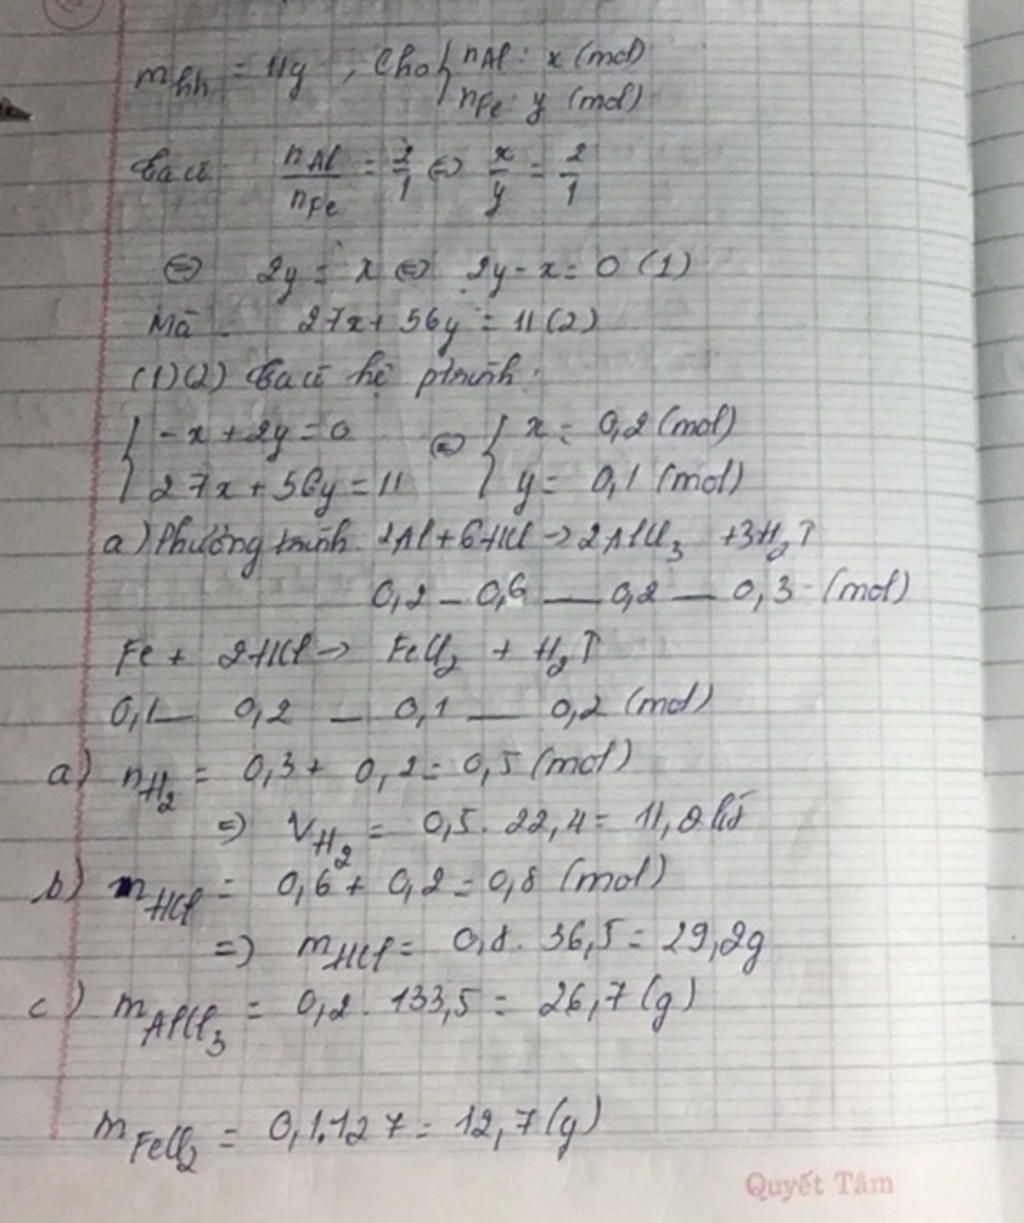 m_hh = 11g , Cho { nAl: x (mol)
nFe: y (mol)
Ta có: nAl/nFe = 2/1 ⇔ x/y = 2/1
⇔ 2y = x ⇔ 2y - x = 0 (1)
Mà 27x + 56y = 11 (2)
(1)(2) ta có hệ ptrình:
{ -x + 2y = 0 ⇔ { x = 0,2 (mol)
27x + 56y = 11 y = 0,1 (mol)
a) Phương trình 2Al + 6HCl → 2AlCl₃ + 3H₂↑
0,2 — 0,6 — 0,2 — 0,3 (mol)
Fe + 2HCl → FeCl₂ + H₂↑
0,1 — 0,2 — 0,1 — 0,2 (mol)
a) nH₂ = 0,3 + 0,2 = 0,5 (mol)
⇒ VH₂ = 0,5 . 22,4 = 11,2 lít
b) mHCl = 0,6 + 0,2 = 0,8 (mol)
⇒ mHCl = 0,8 . 36,5 = 29,2g
c) mAlCl₃ = 0,2 . 133,5 = 26,7 (g)
mFeCl₂ = 0,1.127 = 12,7 (g)
Quyết Tâm